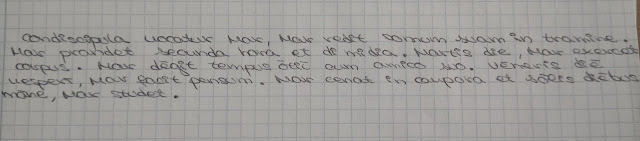 condiscipula vocatur Mar, Mar redit domum suam in tramine.
Mar prandet secunda hora et dimidia. Martis die, Mar exercet
corpus. Mar degit tempus otii cum amico suo. Veneris die
vesperi, Mar facit pensum. Mar cenat in caupona et solis diebus
mane, Mar studet.